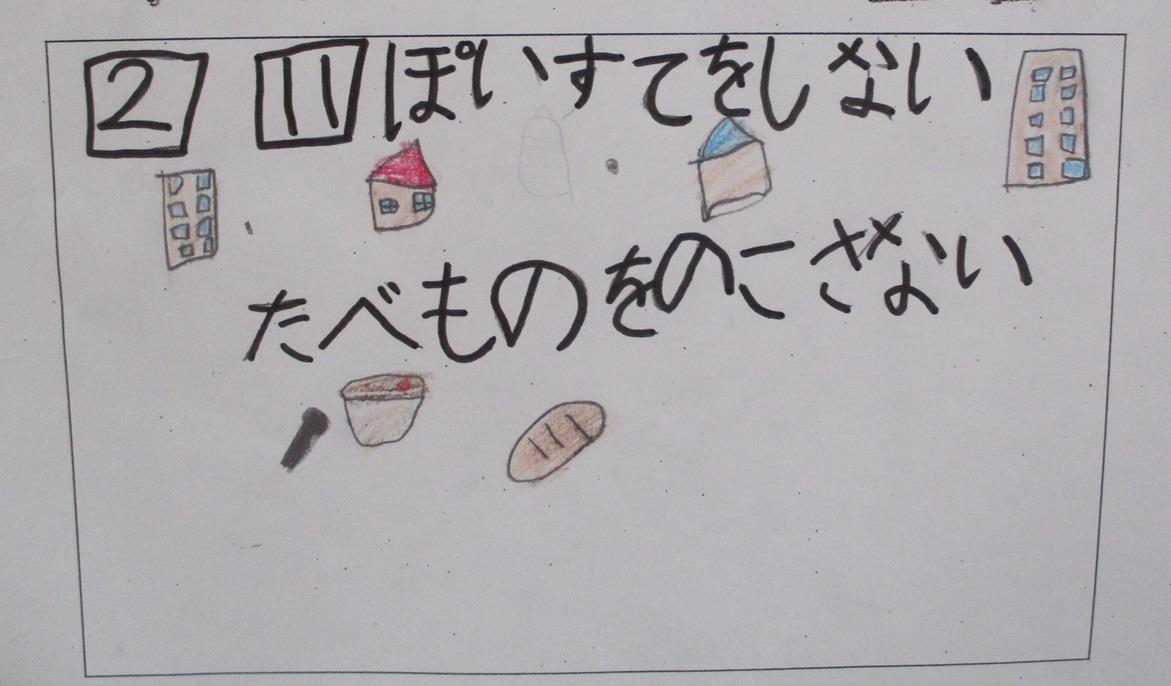 2 11 ぽいすてをしない
たべものをのこさない